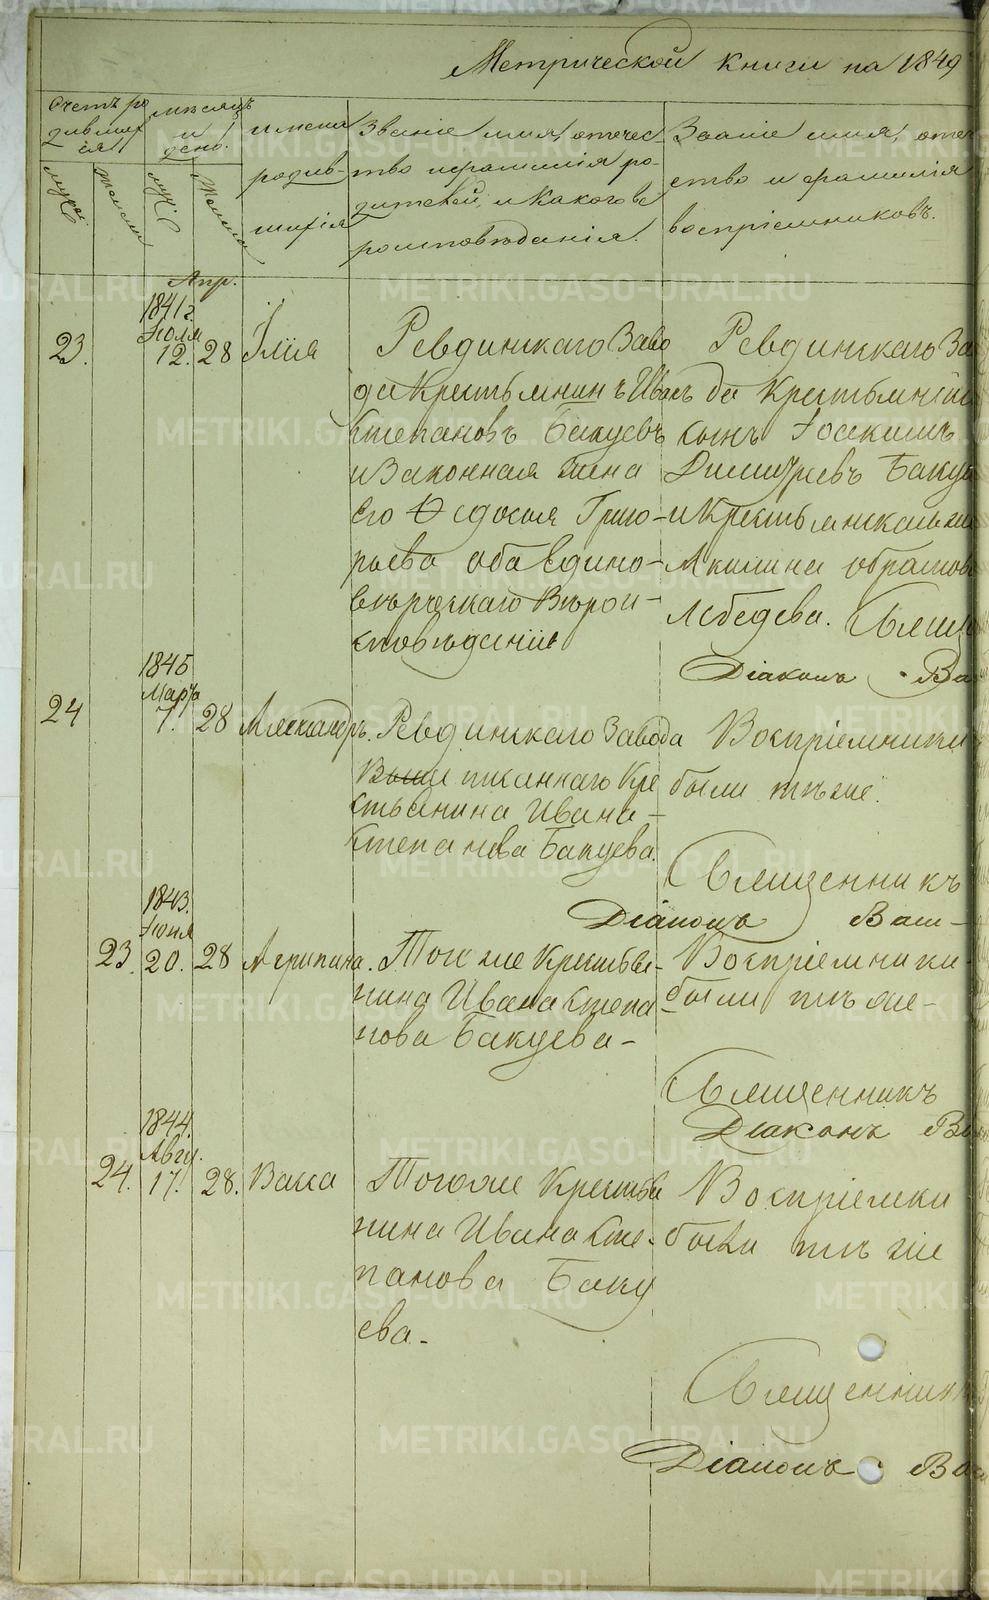 Метрической книги на 1849
Счетъ ро
дивших
ся
Мѣсяцъ
и
день.
имена
родив-
шихся
Званіе имя, отечес
тво и фамилія ро-
дителей, и какого вѣ
роисповѣданія.
Званіе имя, отече
ство и фамилія
воспріемниковъ.
Апр.
1841 г.
Іюля
23. 12. 28 Ілія
Ревдинскаго Заво
да Крестьянинъ Иванъ
Степановъ Бакуевъ
и Законная жена
Его Ѳедосья Григо-
рьева оба едино-
верческаго Вѣрои-
споведенія
Ревдинскаго За
да Крестьянскій
сынъ Іоакимъ
Димитріевъ Бакуе
и Крестьянская же
Акилина
Лебедева. Свящ
Діаконъ Ва
1845
Март
24 7. 28 Александръ. Ревдинскаго Завода
Выше писаннаго Кре
стьянина Ивана
Степанова Бакуева.
Воспріемники
были тѣже.
Священникъ
Діаконъ Ваш-
1843.
Іюня
23. 20. 28 Агрипина. Того же Крестья-
нина Ивана Степа-
нова Бакуева-
Воспріемники
были тѣ же-
Священникъ
Діаконъ Ва
1844.
Авгу.
24. 17. 28. Васса Того же Крестья
нина Ивана Сте-
панова Баку
ева-
Воспріемки
были тѣ же
Священник
Діаконъ Ва
METRIKI.GASO-URAL.RU